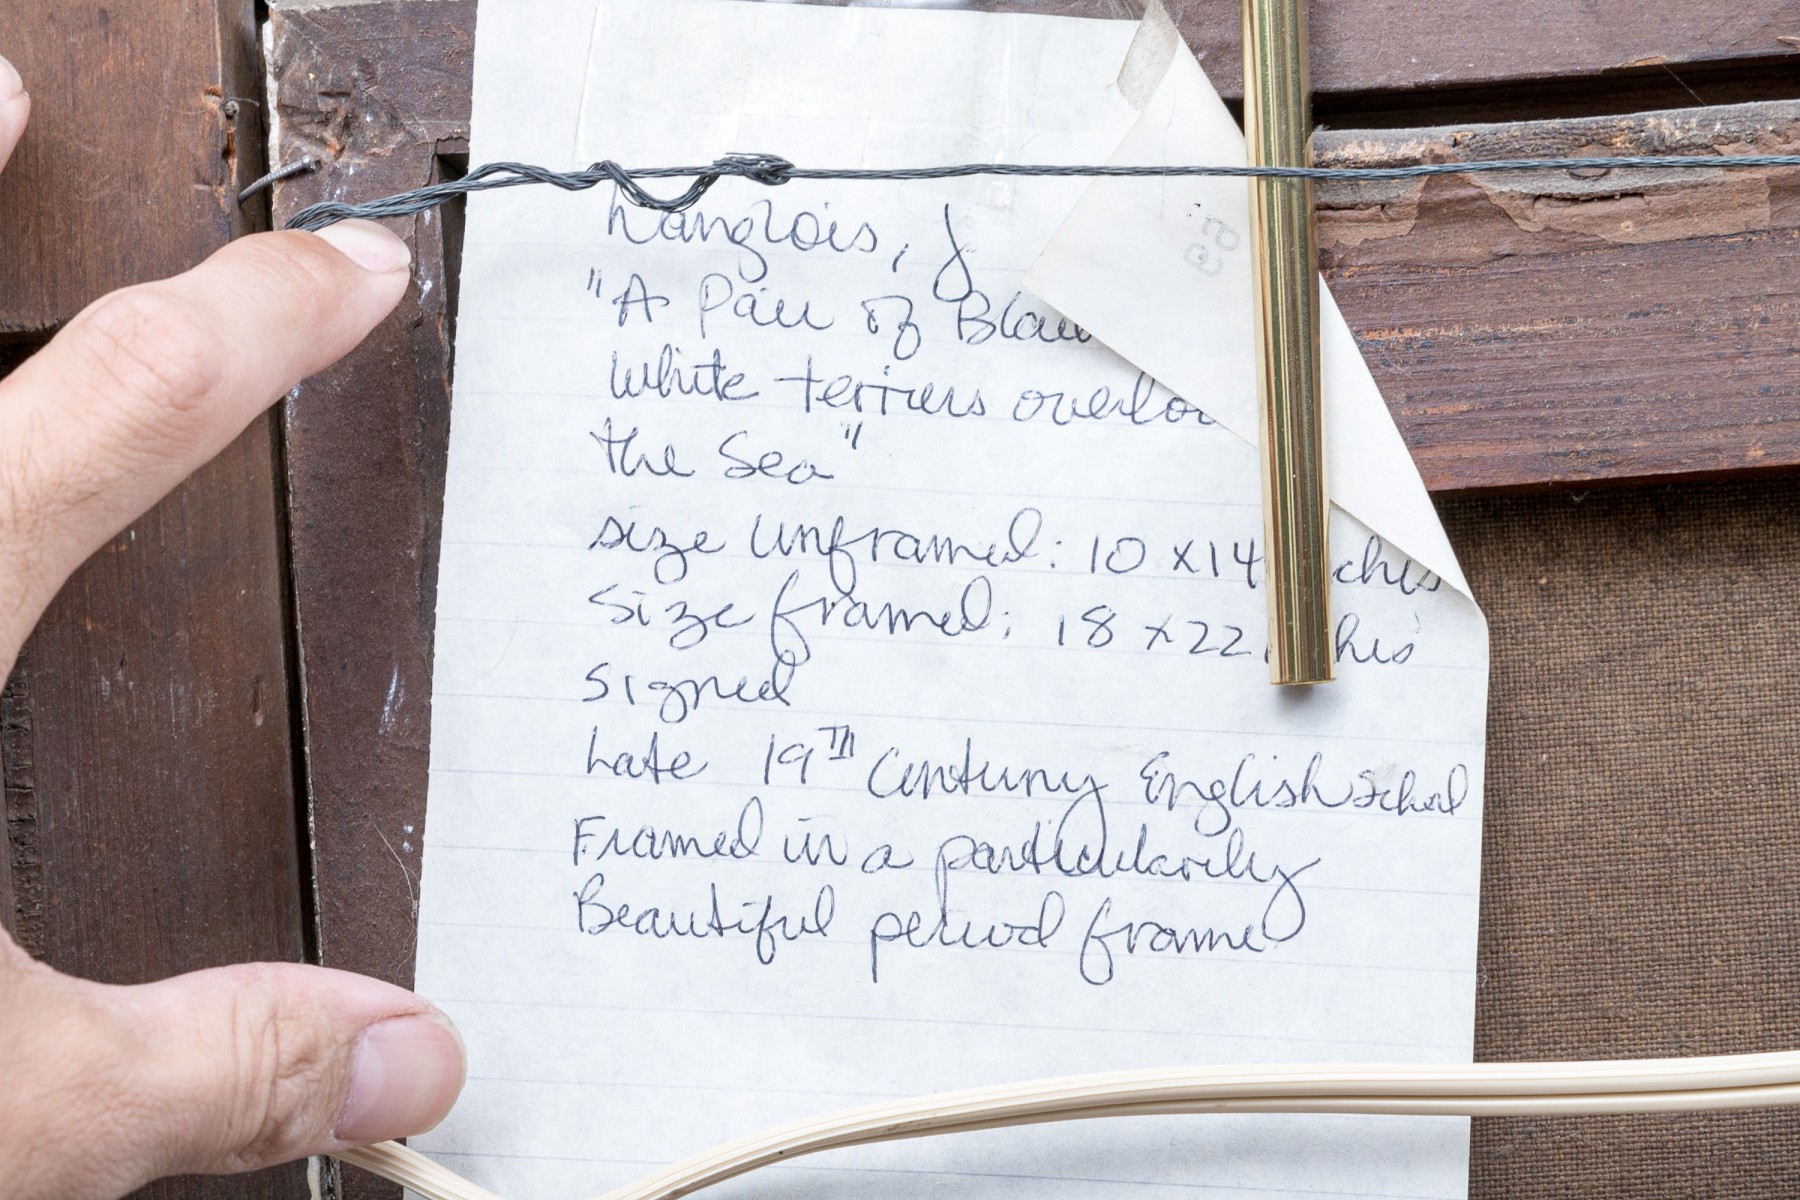 Langlois, J
"A Pair of Blac
White terriers overloo
the Sea"
size unframed: 10 x 14 ches
Size framed: 18 x 22 hes
Signed
Late 19TH Century English School
Framed in a particularily
Beautiful period frame